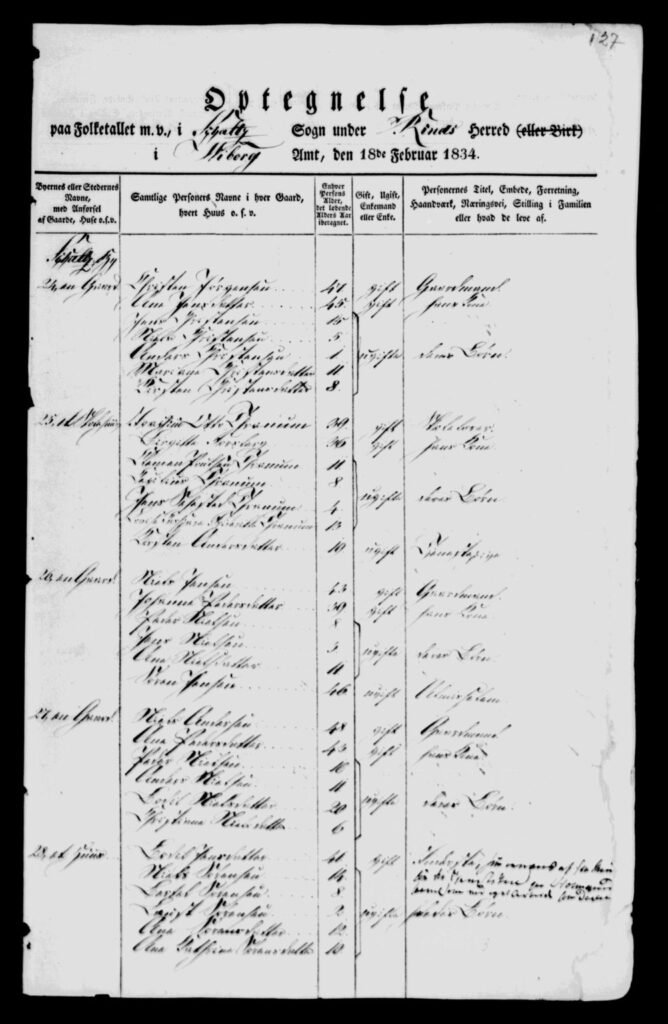 127
Optegnelse
paa Folketallet m. v., i Schaltz Sogn under Rinds Herred (eller Birk)
i Wiborg Amt, den 18de Februar 1834.
Byernes eller Stedernes Navne, med Anførsel af Gaarde, Huse o. s. v.
Samtlige Personers Navne i hver Gaard, hvert Huus o. s. v.
Enhver Persons Alder, det løbende Alders Aar iberegnet.
Gift, Ugift, Enkemand eller Enke.
Personernes Titel, Embede, Forretning, Haandværk, Næringsvei, Stilling i Familien eller hvad de leve af.
Schaltz By
24, en Gaard Christen Jørgensen 41 gift Gaardmand
Ane Jensdatter 45 gift hans Kone
Jens Christensen 15
Niels Christensen 5
Anders Christensen 1 ugifte deres Børn
Mariane Christensdatter 11
Kirsten Christensdatter 8
25, et Otto Granum 39 gift
Birgitte 36 gift hans Kone
Granum 11
Granum 8
Jens Granum 4 ugifte deres Børn
Granum 13
Kirsten Andersdatter 19 ugift Tjenestepige
26, en Gaard Niels Jensen 43 gift Gaardmand
Johanne Pedersdatter 39 gift hans Kone
Peder Nielsen 8
Jens Nielsen 3 ugifte deres Børn
Ane Nielsdatter 11
Søren Jensen 46 ugift Almisselem
27, en Gaard Niels Andersen 48 gift Gaardmand
Ane Pedersdatter 43 gift hans Kone
Peder Nielsen 16
Anders Nielsen 11
Bodel Nielsdatter 20 ugifte deres Børn
Christiane Nielsdatter 6
28, et Huus Bodel Jensdatter 41 gift Inderste,
Niels Sørensen 14
Sørensen 8
Laust Sørensen 2 ugifte Børn
Ane Sørensdatter 12
Ane Cathrine Sørensdatter 10